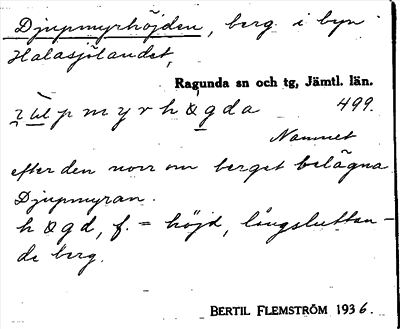 Djupmyrhöjden, berg i byn
Halasjölandet,
Ragunda sn och tg, Jämtl. län.
pmyrhøgda 499.
Namnet
efter den norr om berget belägna
Djupmyran.
høgd, f. = höjd, långsluttan-
de berg.
BERTIL FLEMSTRÖM 1936.